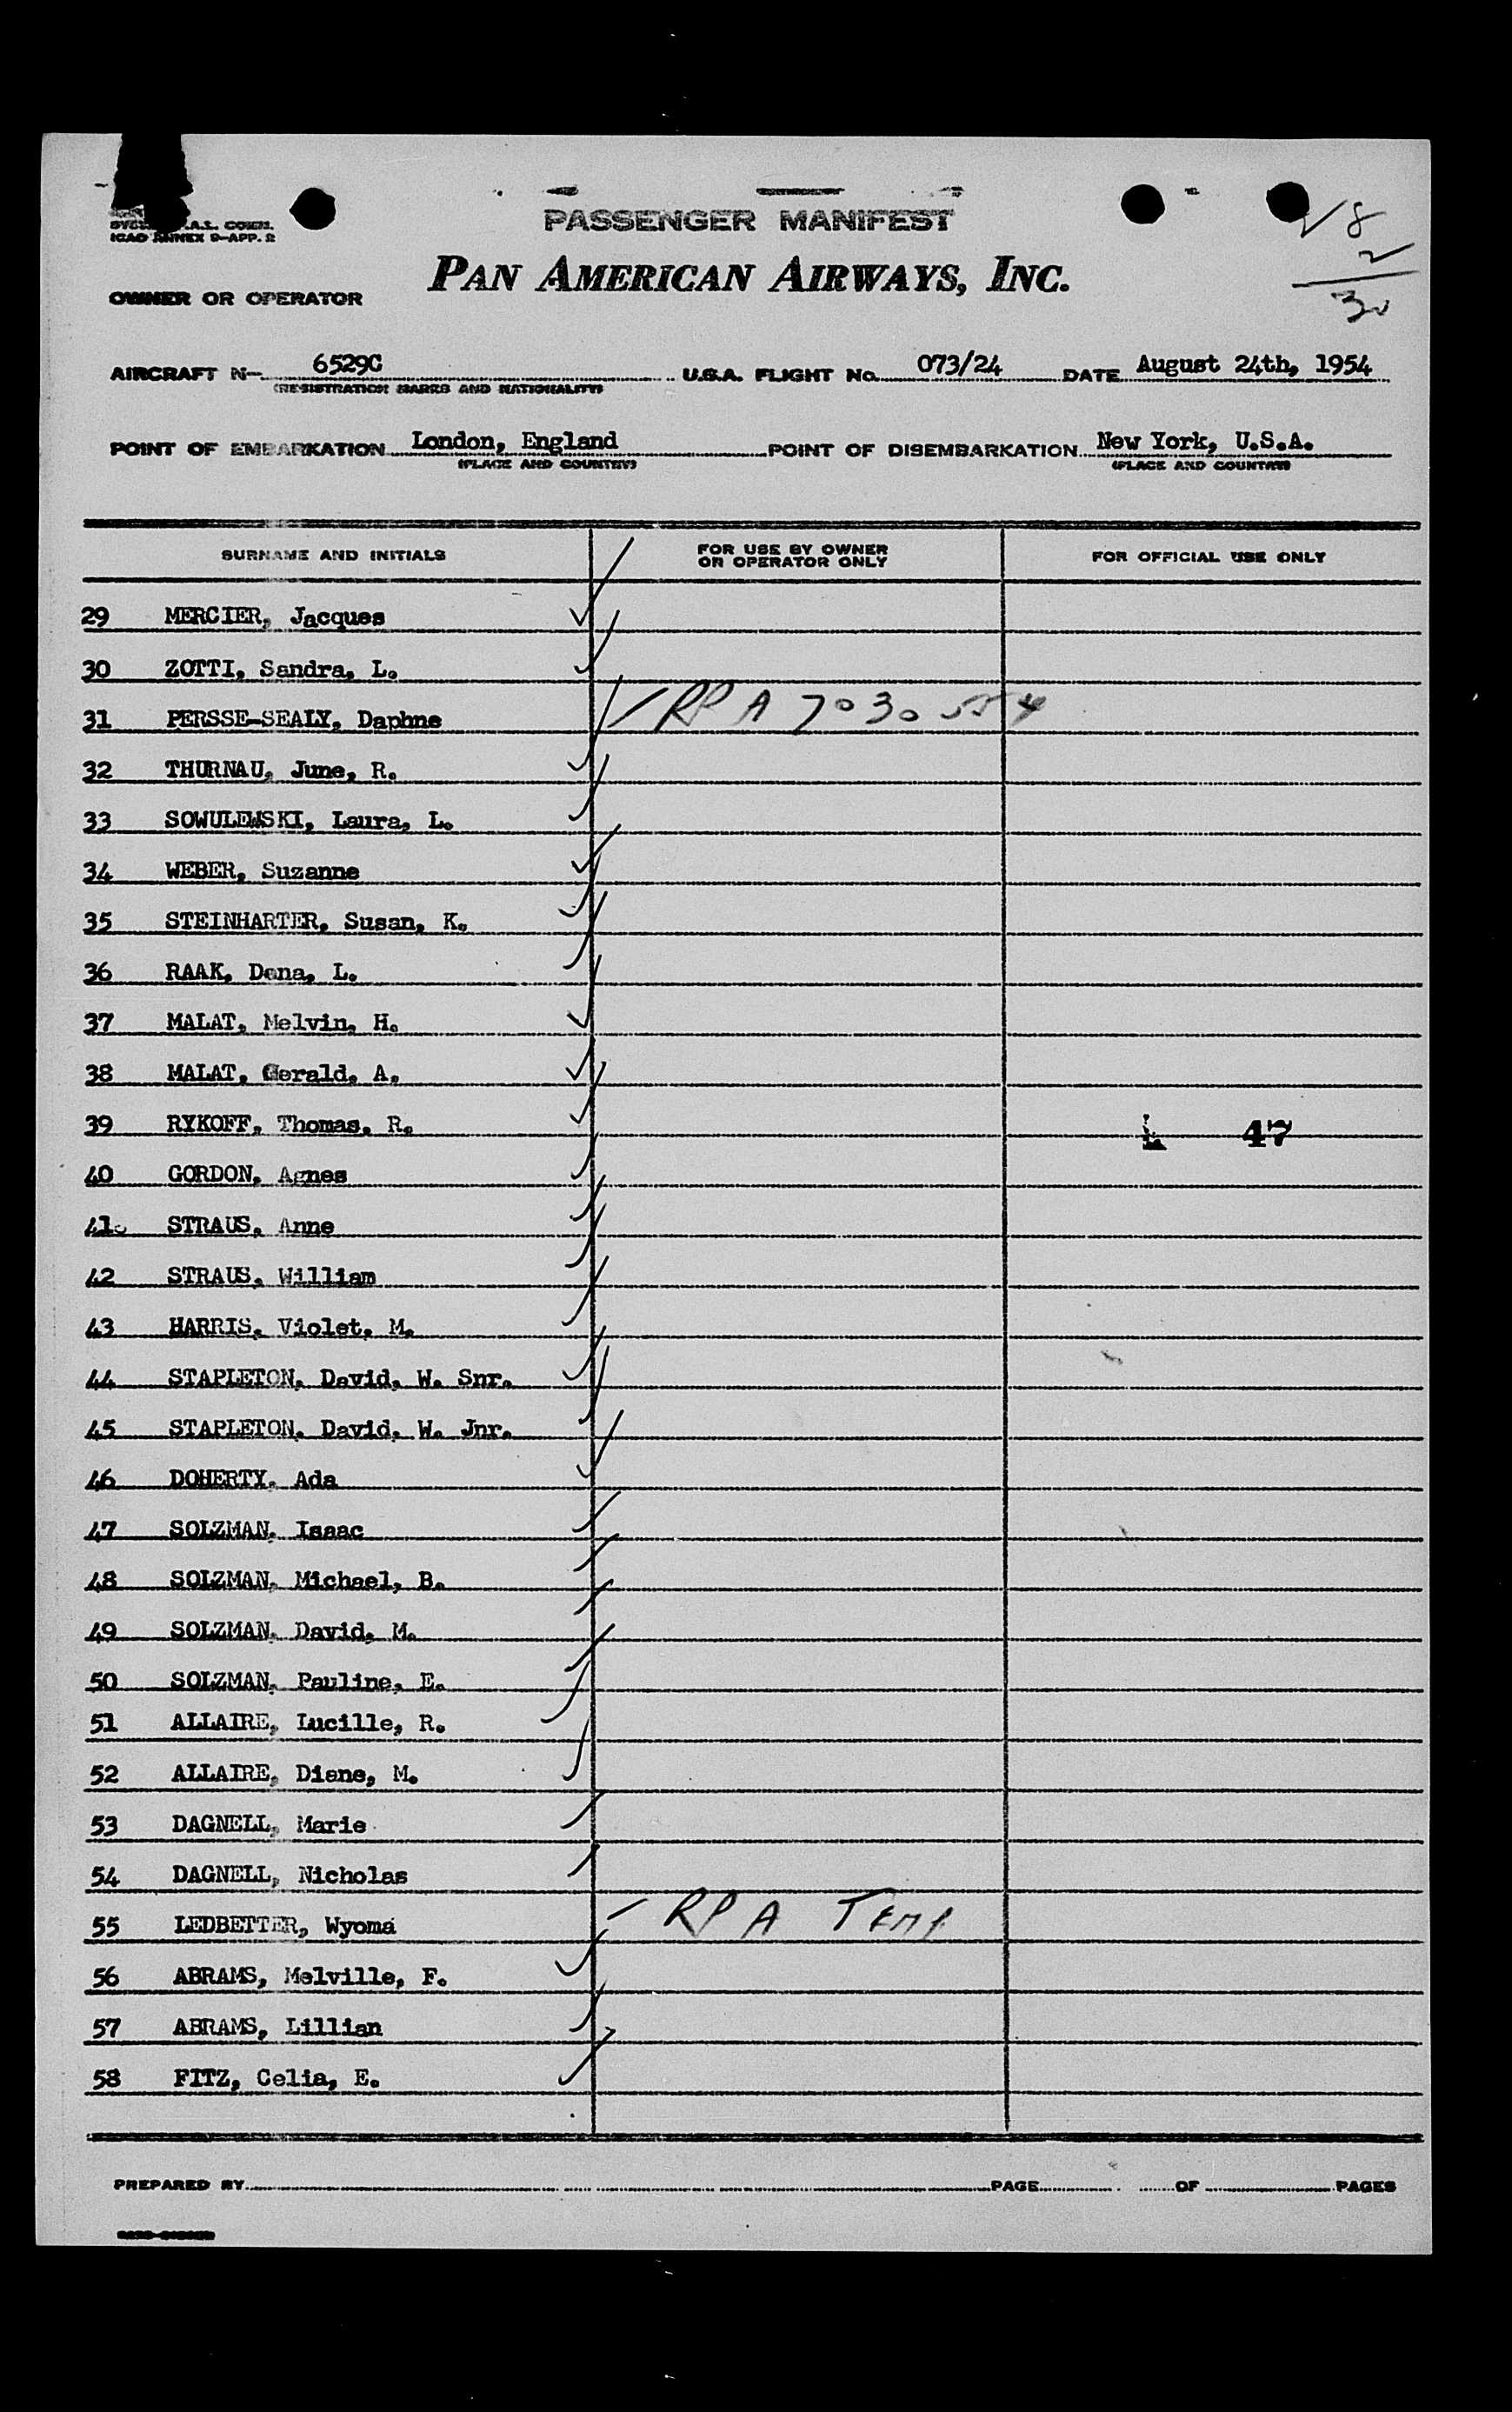 ICAO ANNEX 9-APP. 2
PASSENGER MANIFEST
PAN AMERICAN AIRWAYS, INC.
OWNER OR OPERATOR
8
2
30
AIRCRAFT N- 6529C U.S.A. FLIGHT No. 073/24 DATE August 24th, 1954
(REGISTRATION MARKS AND NATIONALITY)
POINT OF EMBARKATION London, England POINT OF DISEMBARKATION New York, U.S.A.
(PLACE AND COUNTRY) (PLACE AND COUNTRY)
SURNAME AND INITIALS FOR USE BY OWNER OR OPERATOR ONLY FOR OFFICIAL USE ONLY
29 MERCIER, Jacques
30 ZOTTI, Sandra, L.
31 PERSSE-SEALY, Daphne RP A 7030554
32 THURNAU, June, R.
33 SOWULEWSKI, Laura, L.
34 WEBER, Suzanne
35 STEINHARTER, Susan, K.
36 RAAK, Dena, L.
37 MALAT, Melvin, H.
38 MALAT, Gerald, A.
39 RYKOFF, Thomas, R. 47
40 GORDON, Agnes
41. STRAUS, Anne
42 STRAUS, William
43 HARRIS, Violet, M.
44 STAPLETON, David, W. Snr.
45 STAPLETON, David, W. Jnr.
46 DOHERTY, Ada
47 SOLZMAN, Isaac
48 SOLZMAN, Michael, B.
49 SOLZMAN, David, M.
50 SOLZMAN, Pauline, E.
51 ALLAIRE, Lucille, R.
52 ALLAIRE, Diane, M.
53 DAGNELL, Marie
54 DAGNELL, Nicholas
55 LEDBETTER, Wyoma RP A Temp
56 ABRAMS, Melville, F.
57 ABRAMS, Lillian
58 FITZ, Celia, E.
PREPARED BY PAGE OF PAGES